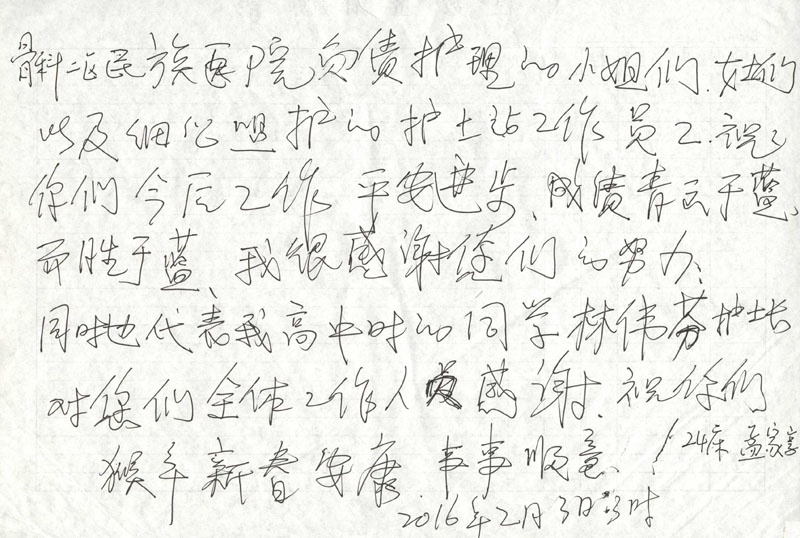 骨科二区民族医院负责护理的小姐们.女士们
以及细心照护的护士站工作员工.祝
你们今后工作平安进步、成绩青出于蓝、
而胜于蓝、我很感谢您们的努力、
同时也代表我高中时的同学林伟芬护士长
对您们全体工作人员感谢.祝你们
猴年新春安康 事事顺意、!
24床 孟家享
2016年2月3日3时